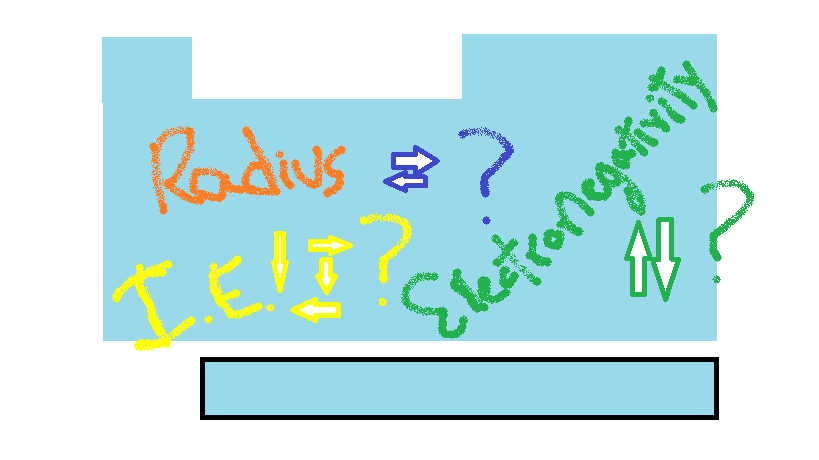 Radius ?
I.E. ?
Eletronegativity ?